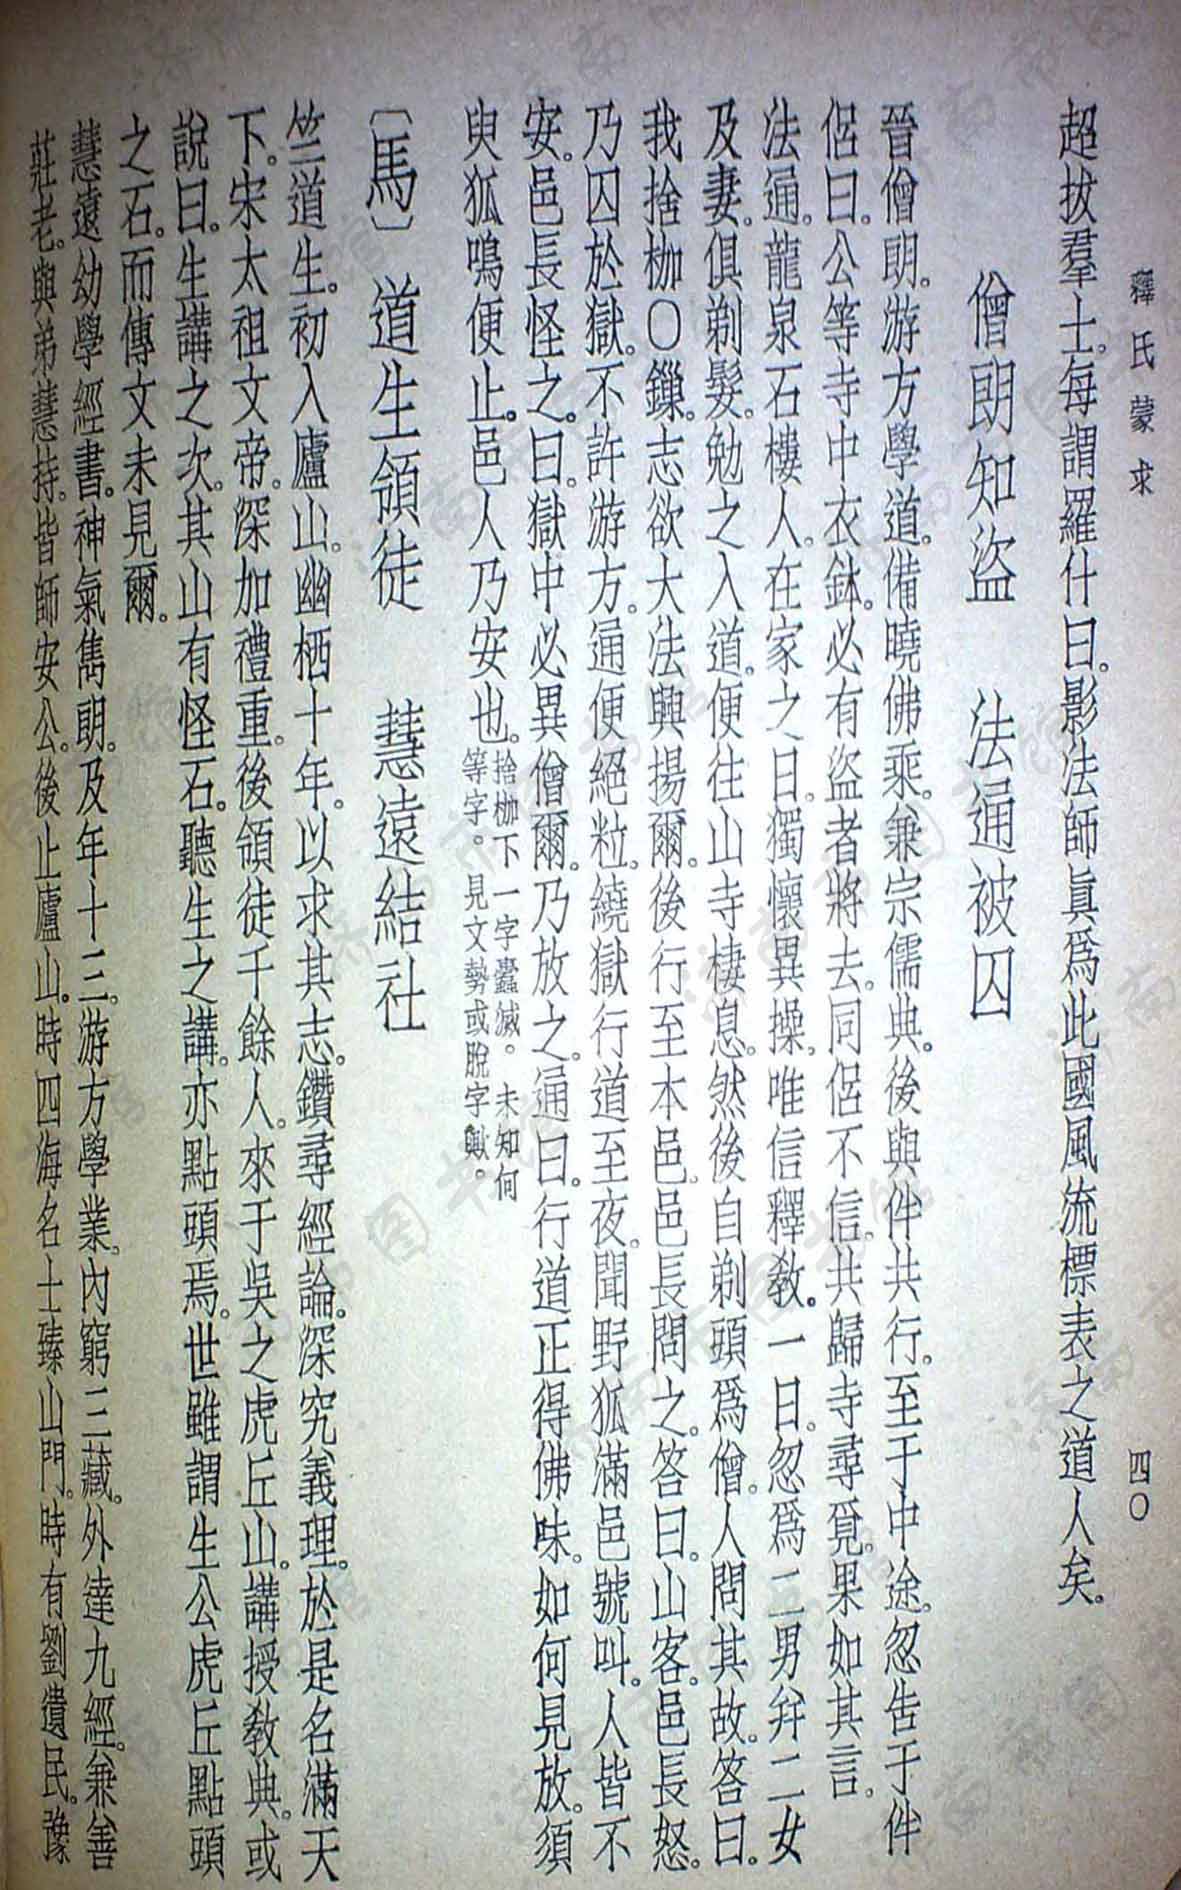 釋氏蒙求
四〇
超拔羣士。每謂羅什曰。影法師眞爲此國風流標表之道人矣。
僧朗知盜　法通被囚
晉僧朗。游方學道。備曉佛乘。兼宗儒典。後與伴共行。至于中途。忽告于伴
侶曰。公等寺中衣鉢。必有盜者將去。同侶不信。共歸寺尋覓。果如其言。
法通。龍泉石樓人。在家之日。獨懷異操。唯信釋教。一日。忽爲二男并二女
及妻。俱剃髮。勉之入道。便往山寺棲息。然後自剃頭爲僧。人問其故。答曰。
我捨枷〇鏁。志欲大法興揚爾。後行至本邑。邑長問之。答曰。山客。邑長怒。
乃囚於獄。不許游方。通便絕粒。繞獄行道至夜。聞野狐滿邑號叫。人皆不
安。邑長怪之。曰。獄中必異僧爾。乃放之。通曰。行道正得佛味。如何見放。須
臾狐鳴便止。邑人乃安也。捨枷下一字蠧滅。未知何
等字。見文勢或脫字歟。
〔馬〕　道生領徒　慧遠結社
竺道生。初入廬山。幽栖十年。以求其志。鑽尋經論。深究義理。於是名滿天
下。宋太祖文帝。深加禮重。後領徒千餘人。來于吳之虎丘山。講授教典。或
說曰。生講之次。其山有怪石。聽生之講。亦點頭焉。世雖謂生公虎丘點頭
之石。而傳文未見爾。
慧遠幼學經書。神氣雋朗。及年十三。游方學業。內窮三藏。外達九經。兼善
莊老。與弟慧持。皆師安公。後止廬山。時四海名士臻山門。時有劉遺民。豫